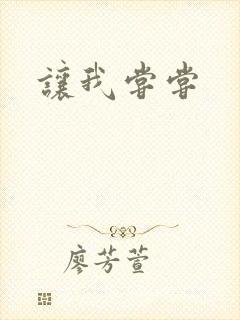 讓我嘗嘗
廖芳萱